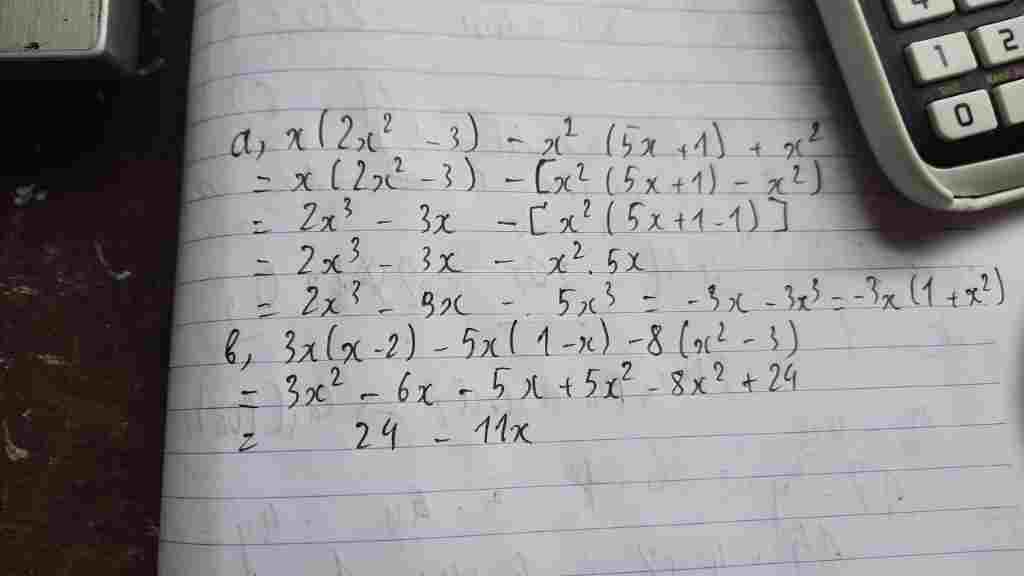 a, x(2x² - 3) - x² (5x + 1) + x²
= x (2x² - 3) - [x² (5x + 1) - x²)
= 2x³ - 3x - [x² (5x + 1 - 1)]
= 2x³ - 3x - x² . 5x
= 2x³ - 3x - 5x³ = -3x - 3x³ = -3x (1 + x²)
b, 3x(x - 2) - 5x( 1 - x) - 8 (x² - 3)
= 3x² - 6x - 5x + 5x² - 8x² + 24
= 24 - 11x
4
1 2
0